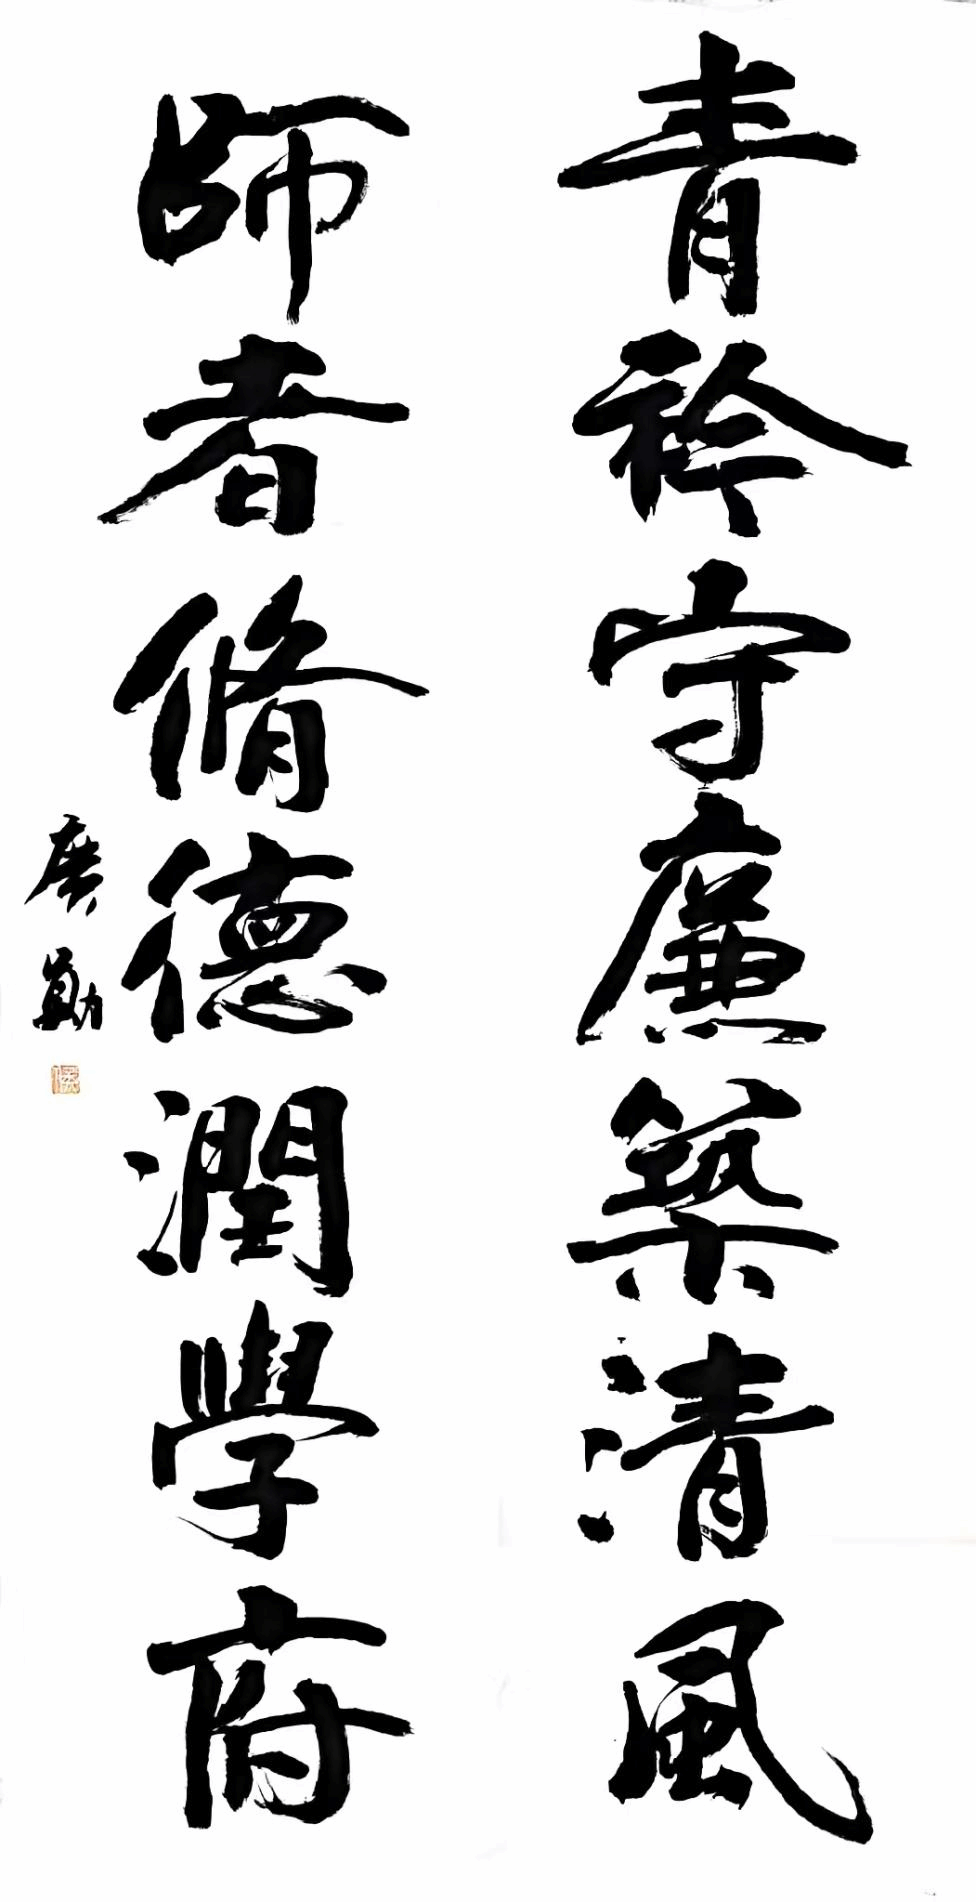 青衿守廉築清風
師者脩德潤學府
廣勛